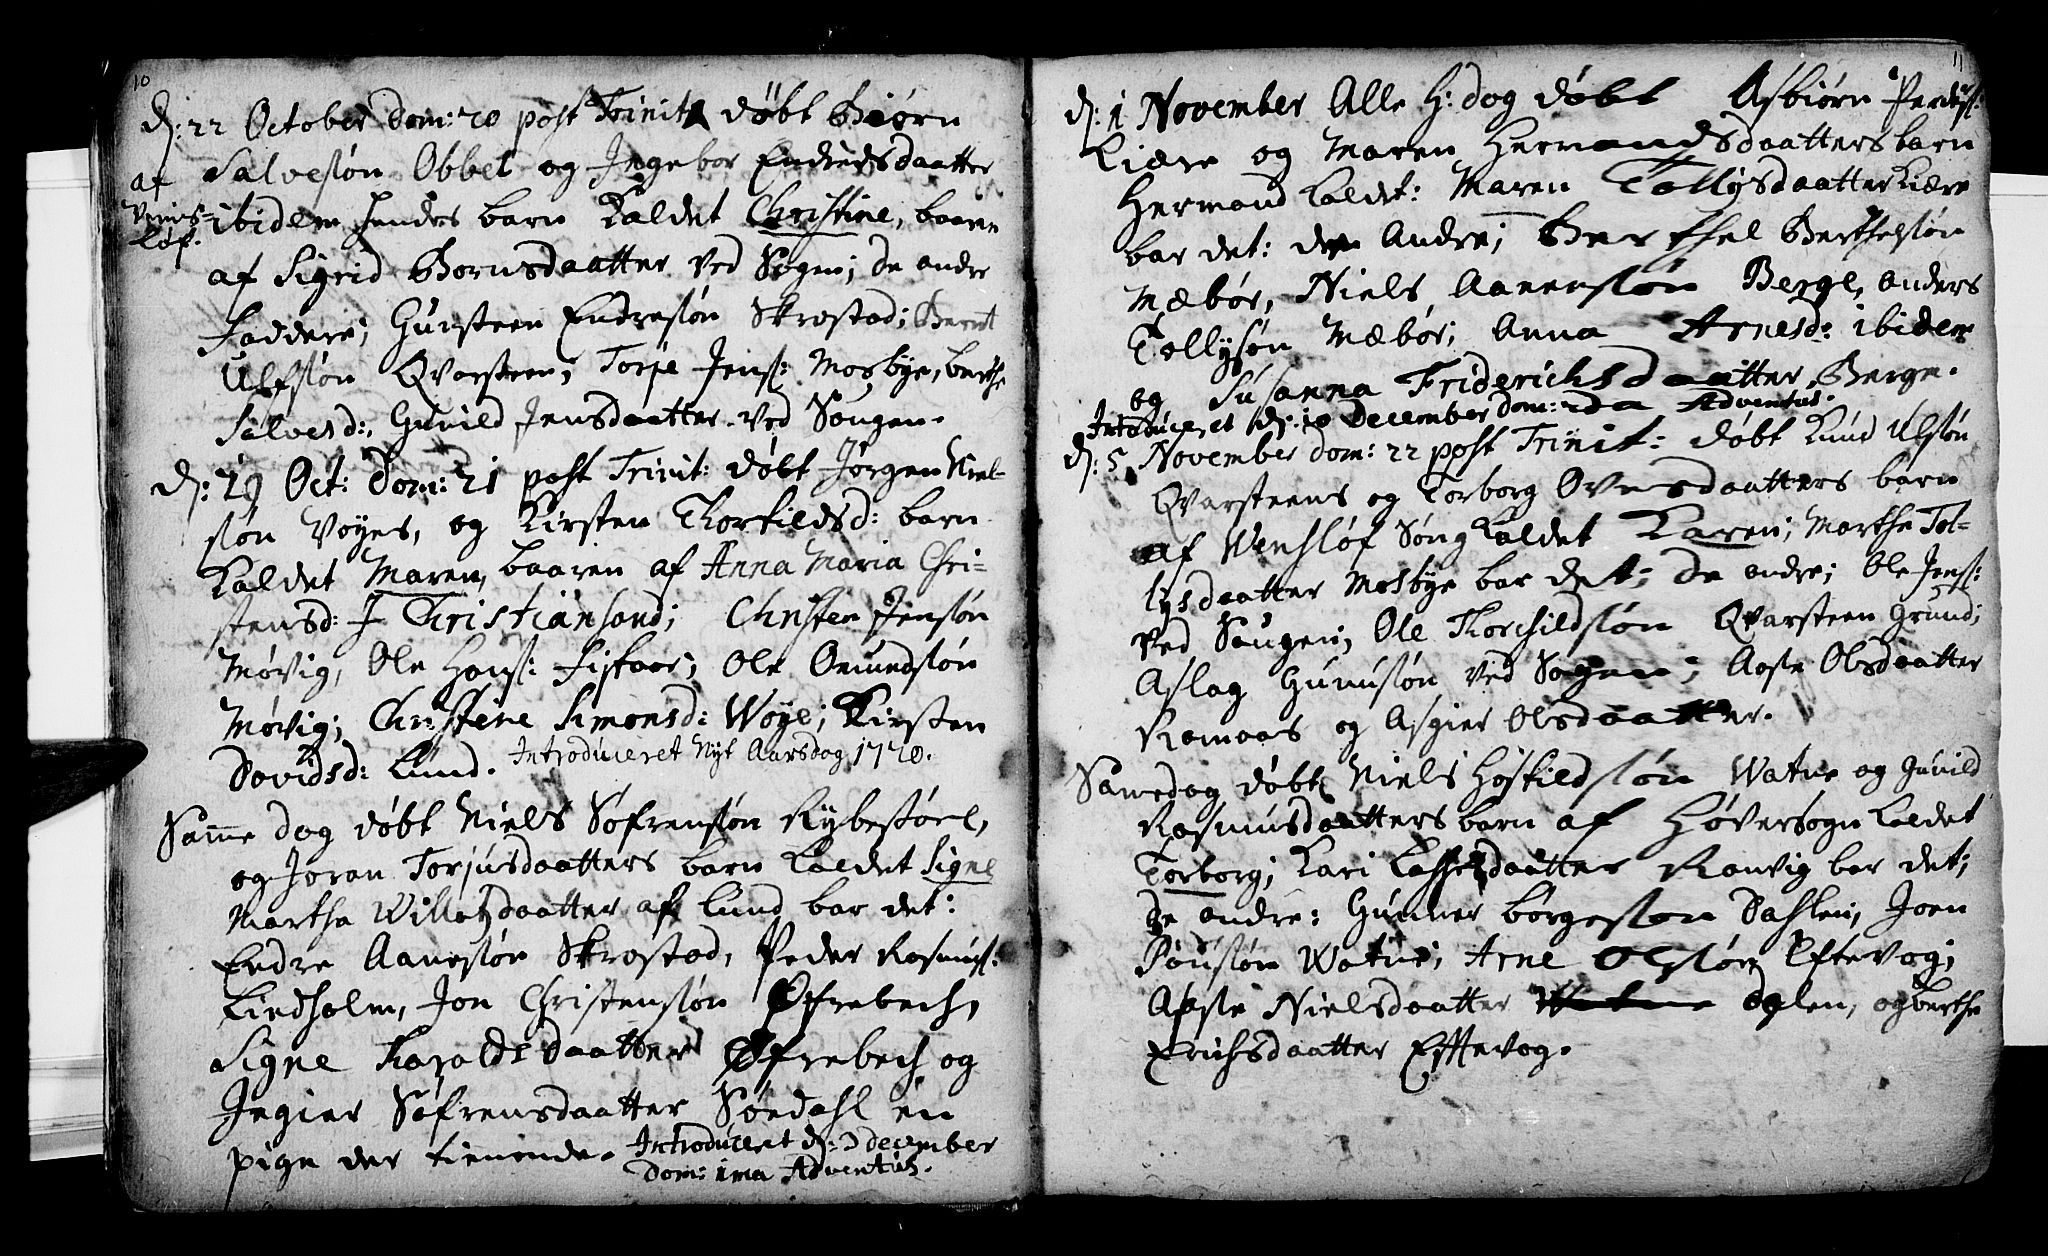 10
d: 22 October Dom: 20 post Trinit: døbt Biørn
Salvesøn Obbel og Ingebor Endredsdaatter
af Vens=
løf.
ibidem hendes barn Kaldet Christine, baaren
af Sigrid Bornsdaatter ved Sogen; de andre
Faddere; Gunsteen Endresøn Skrostad; Bernt
Ulfsøn Qvarsteen; Torje Jens: Mosbye, berthe
Salvesd:, Gunild Jensdaatter ved Songen.
d: 29 Oct: Dom: 21 post Trinit: døbt Jørgen Niel=
søn Voyes, og Kirsten Thorkildsd: barn
Kaldet Maren, baaren af Anna Maria Chri=
stensd: I Christiansand; Christen Jensøn
Møvig, Ole Hans: Fiskaar; Ole Omundsøn
Møvig; Christine Simonsd: Woye; Kirsten
Davidsd: Lund. Introduceret Nyt Aarsdag 1720.
Samme dag døbt Niels Søfrensøn Rybestøel,
og Joran Torjusdaatters barn Kaldet Signe
Martha Willatzdaatter af Lund bar det:
Endre Aanesøn Skrostad, Peder Rasmus:
Lindholm, Jon Christensøn Øfrebech,
Signe Haraldsdaatter Øfrebech og
Ingier Søfrensdaatter Søedahl en
pige der tienende. Introduceret d: 3 December
Dom: 1ma Adventus.
11
d: 1 November Alle H: dag døbt Asbiørn Peders:
Kiære og Maren Hermandsdaatters barn
Hermand Kaldet: Maren Tollysdaatter Kiære
bar det: den Andre; Berthel Berthelsøn
Mæbøe, Niels Aanensøn Berge, Anders
Tollysøn Mæbøe; Anna Arnesd: ibidem
og Susanna Friderichsdaatter Berge.
Introduceret d: 10 December dom: 2da Adventus.
d: 5 November dom: 22 post Trinit: døbt Knud Ulsøn
Qvarsteens og Torborg Ovensdaatters barn
af Wensløf Sogn Kaldet Karen; Marthe Tol=
lysdaatter Mosbye bar det; de andre; Ole Jens:
ved Saugen; Ole Thorchildsøn Qvarsteen Grund;
Aslag Gunusøn ved Sogen; Aase Olsdaatter
Ramaas og Asgier Olsdaatter.
Samedag døbt Niels Høskildsøn Watne og Gunild
Rasmusdaatters barn af Høversogn Kaldet
Torborg; Kari Lassesdaatter Ranvig bar det;
De andre: Gunner børgesøn Dahlen, Joen
Jonsøn Watne; Arne Olsøn Eftevog;
Aasse Nielsdaatter Dalen, og berthe
Erichsdaatter Eftevog.